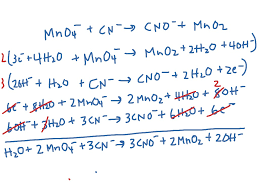 MnO₄⁻ + CN⁻ → CNO⁻ + MnO₂
2(3e⁻+4H₂O + MnO₄⁻ → MnO₂+2H₂O+4OH⁻)
3(2OH⁻+H₂O + CN⁻ → CNO⁻+2H₂O+2e⁻)
6e⁻+8H₂O+2MnO₄⁻→2MnO₂+4H₂O+2 8OH⁻
6OH⁻+3H₂O+3CN⁻→3CNO⁻+6H₂O+6e⁻
H₂O+2MnO₄⁻+3CN⁻→3CNO⁻+2MnO₂+2OH⁻